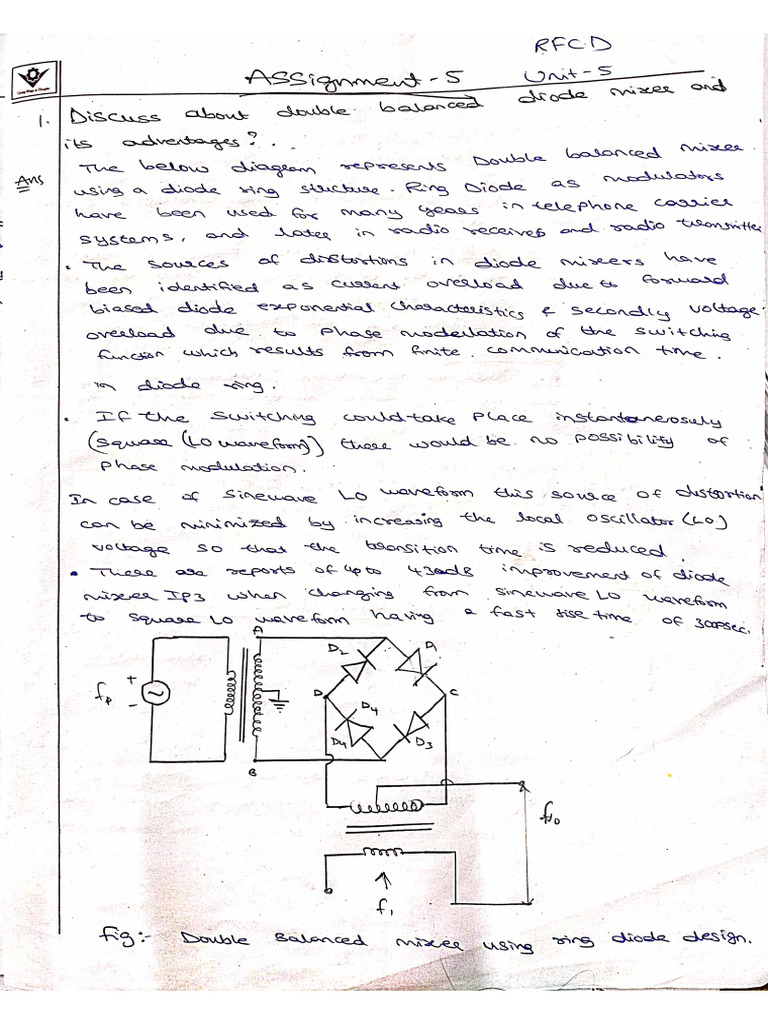 RFCD
Assignment-5 Unit-5
1. Discuss about double balanced diode mixer and
its advantages?..
Ans The below diagram represents Double balanced mixer
using a diode ring structure. Ring Diode as modulators
have been used for many years in telephone carrier
systems, and later in radio receives and radio transmitter
• The sources of distortions in diode mixers have
been identified as current overload due to forward
biased diode exponential characteristics & secondly voltage
overload due to phase modulation of the switching
function which results from finite. communication time.
in diode ring.
• If the switching could take place instantenerosuly
(square (LO waveform)) there would be no possibility of
phase modulation.
In case of sinewave LO waveform this source of distortion
can be minimized by increasing the local oscillator (LO)
voltage so that the transition time is reduced.
• There are reports of upto improvement of diode
mixer IP3 when changing from sinewave LO waveform
to square LO waveform having a fast rise time of 300psec.
A
D2 D1
fp + - D C
D4
D4 D3
B
f1
Fig:- Double Balanced mixer using ring diode design.